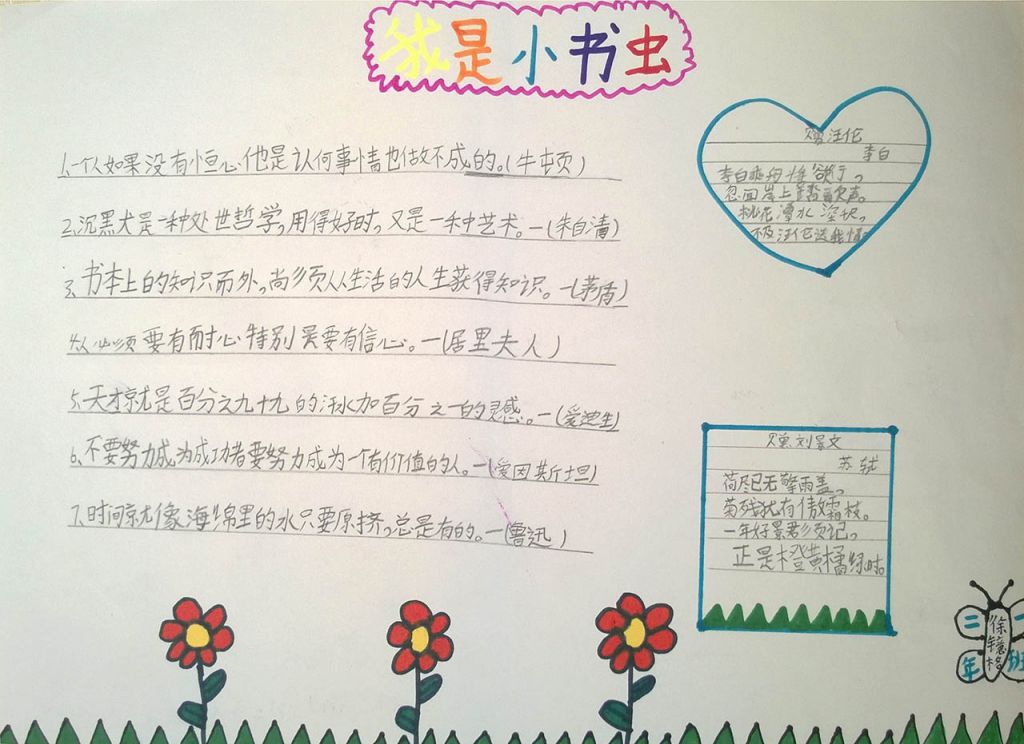 我是小书虫
1.一个人如果没有恒心他是认何事情也做不成的。(牛顿)
2.沉默是一种处世哲学,用得好时,又是一种艺术。—(朱自清)
3.书本上的知识而外,尚须从生活的人生获得知识。—(茅盾)
4.人必须要有耐心特别是要有信心。—(居里夫人)
5.天才就是百分之九十九的汗水加百分之一的灵感。—(爱迪生)
6.不要努力成为成功者要努力成为一个有价值的人。—(爱因斯坦)
7.时间就像海绵里的水只要原挤,总是有的。—(鲁迅)
赠汪伦
李白
李白乘舟将欲行。
忽闻岸上踏歌声。
桃花潭水深
不及汪伦送我情
赠刘景文
苏轼
荷尽已无擎雨盖。
菊残犹有傲霜枝。
一年好景君须记。
正是橙黄橘绿时。
二一
年班
徐